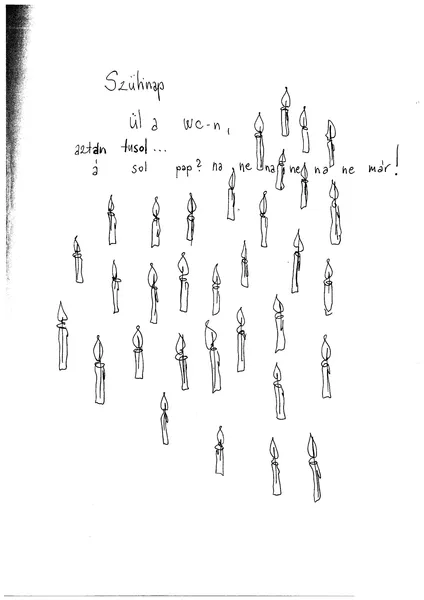 Szülinap
ül a wc-n,
aztán tusol...
á sol pap? na ne na ne na ne már!